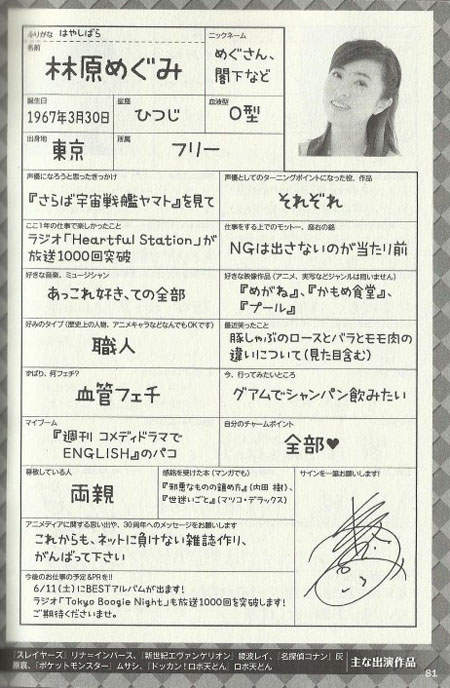 ふりがな はやしばら
名前
林原めぐみ
ニックネーム
めぐさん、
閣下など
誕生日
1967年3月30日
星座
ひつじ
血液型
O型
出身地
東京
所属
フリー
声優になろうと思ったきっかけ
『さらば宇宙戦艦ヤマト』を見て
声優としてのターニングポイントになった役、作品
それぞれ
ここ1年の仕事で楽しかったこと
ラジオ「Heartful Station」が
放送1000回突破
仕事をする上でのモットー、座右の銘
NGは出さないのが当たり前
好きな音楽、ミュージシャン
あっこれ好き、ての全部
好きな映像作品(アニメ、実写などジャンルは問いません)
『めがね』、『かもめ食堂』、
『プール』
好みのタイプ(歴史上の人物、アニメキャラなどなんでもOKです)
職人
最近笑ったこと
豚しゃぶのロースとバラとモモ肉の
違いについて(見た目含む)
ずばり、何フェチ?
血管フェチ
今、行ってみたいところ
グアムでシャンパン飲みたい
マイブーム
『週刊 コメディドラマで
ENGLISH』のパコ
自分のチャームポイント
全部♥
尊敬している人
両親
感銘を受けた本(マンガでも)
『邪悪なものの鎮め方』(内田 樹)、
『世迷いごと』(マツコ・デラックス)
サインを一筆お願いします!
アニメディアに関する思い出や、30周年へのメッセージをお願いします
これからも、ネットに負けない雑誌作り、
がんばって下さい
今後のお仕事の予定&PRを!!
6/11(土)にBESTアルバムが出ます!
ラジオ「Tokyo Boogie Night」も放送1000回を突破します!
ご期待くださいませ。
『スレイヤーズ』リナ=インバース、『新世紀エヴァンゲリオン』綾波レイ、『名探偵コナン』灰
原哀、『ポケットモンスター』ムサシ、『ドッカン!ロボ天どん』ロボ天どん
主な出演作品
81